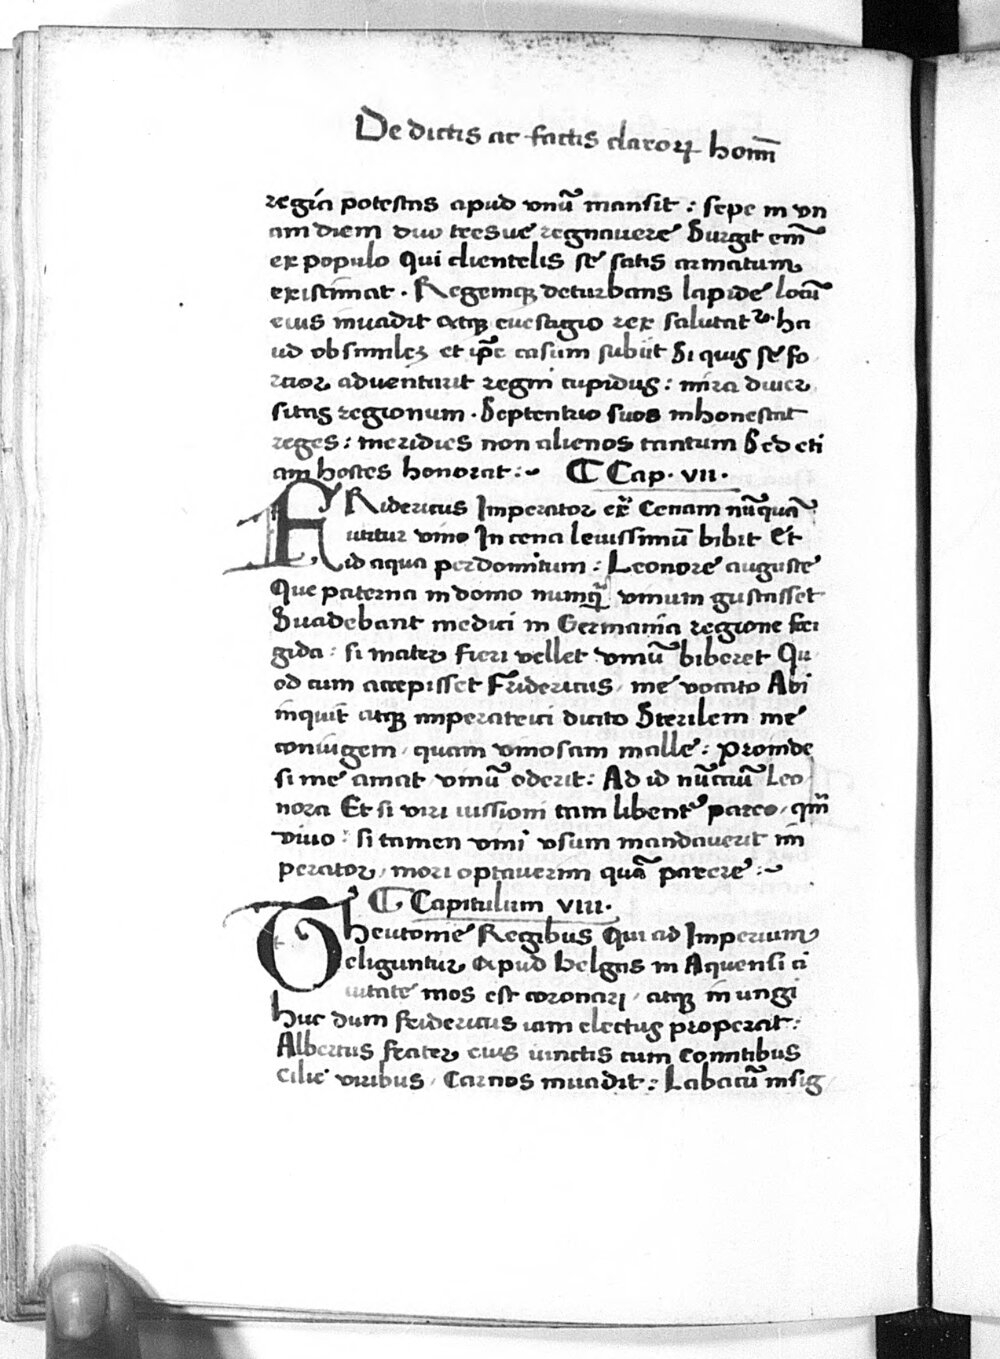 De dictis ac factis claroꝝ hom̄
regia potestas apud vnū mansit : sepe in vn
am diem duo tresue regnauere Surgit em̄
ex populo Qui clientelis se satis armatum
existimat . Regemqꝫ deturbans lapide locū
eius inuadit atqꝫ euestigio rex salutatᷣ. ha
ud obsimilꝫ et ip̄e casum subiit Si quis se fo
rtior aduentarit regni cupidus : mira diuer
sitas regionum . Septentrio suos inhonestat
reges : meridies non alienos tantum Sed eti
am hostes honorat : ~ ¶ Cap . vii .
FRidericus Imperator ex̄ Cenam nūquā
utitur vino In cena leuissimū bibit Et
id aqua perdomitum : Leonore auguste
Que paterna in domo numqᷓ vinum gustasset
Suadebant medici in Germania regione fri
gida : si mater fieri vellet vinū biberet Qu
od cum accepisset Fridericus / me vocato Abi
inquit atqꝫ imperatrici dicito Sterilem me
coniugem / quam vinosam malle : proinde
si me amat vinū oderit : Ad id nūciū Leo
nora Et si viri iussioni tam libentᷣ pareo / qm̄
viuo : si tamen vini vsum mandauerit im
perator / mori optauerim quā parere : ~
¶ Capitulum viii .
THeutonie Regibus Qui ad Imperium
eliguntur Apud belgas in Aquensi ci
uitate mos est coronari / atqꝫ in ungi
huc dum fridericus iam electus properat :
Albertus frater eius iunctis cum comitibus
Cilie viribus / Carnos inuadit : Labacū insig